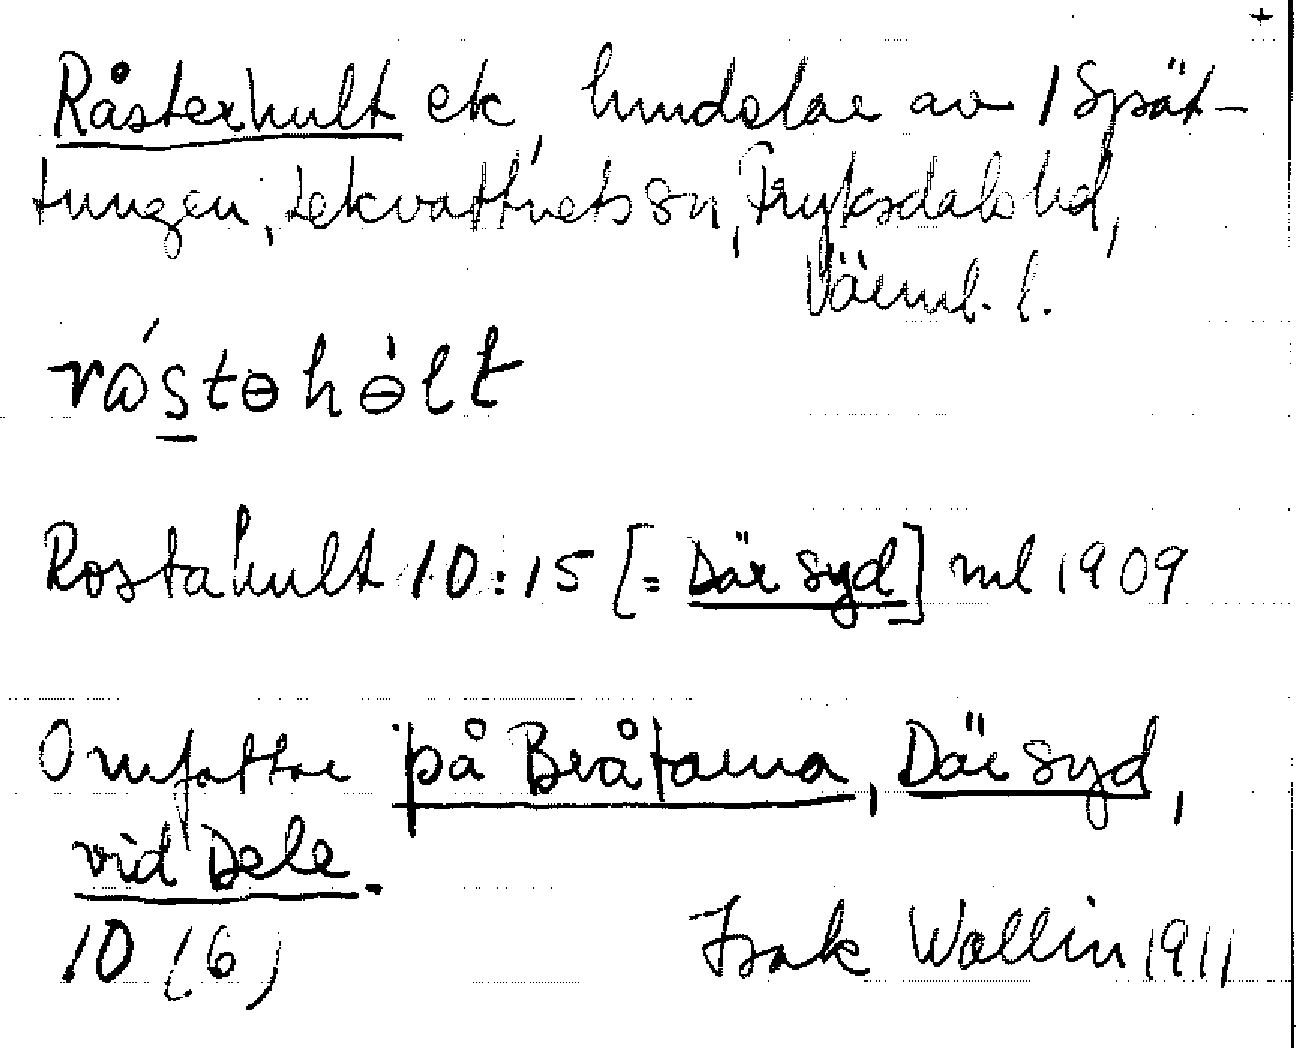 +
Råsterhult ek, hmdelar av 1 Spät-
tungen, Lekvattnets sn, Fryksdals hd,
Värml. l.
råstɵhɵ̀lt
Rostahult 10:15 [= Där syd] ml 1909
Omfattar på Bråtarna, Där syd,
vid Dele.
10 (6) Isak Wallin 1911